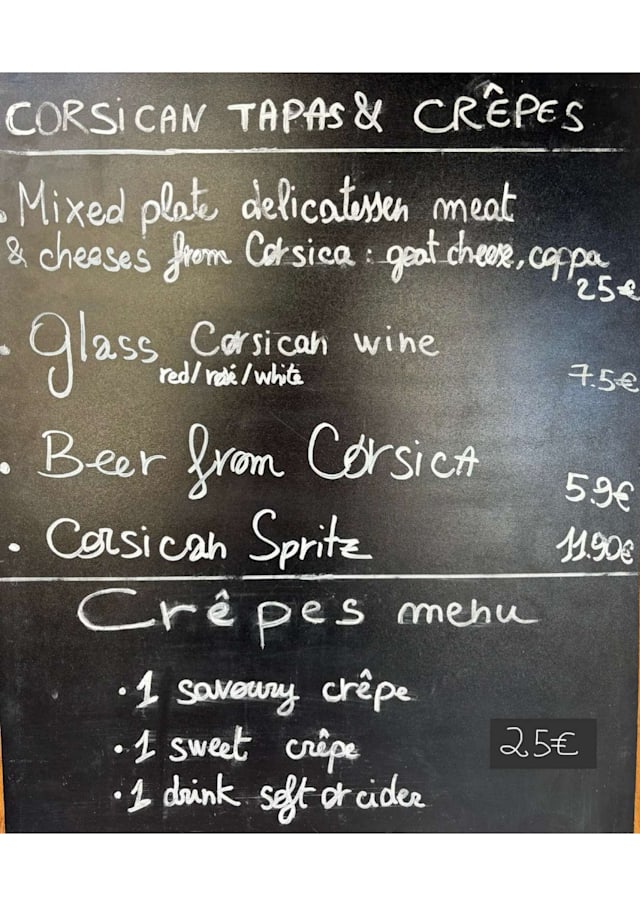 CORSICAN TAPAS & CRÊPES
• Mixed plate delicatessen meat
& cheeses from Corsica : goat cheese, coppa
25€
• Glass Corsican wine
red/rosé/white
7.5€
• Beer from Corsica
5.9€
• Corsican Spritz 11.90€
Crêpes menu
• 1 savoury crêpe
• 1 sweet crêpe 25€
• 1 drink soft or cider